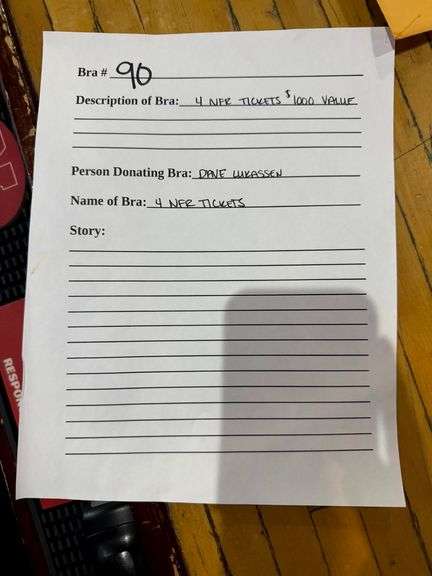 Bra # 90
Description of Bra: 4 NFR TICKETS $1000 VALUE
Person Donating Bra: DAVE LUKASSEN
Name of Bra: 4 NFR TICKETS
Story:
RESPON